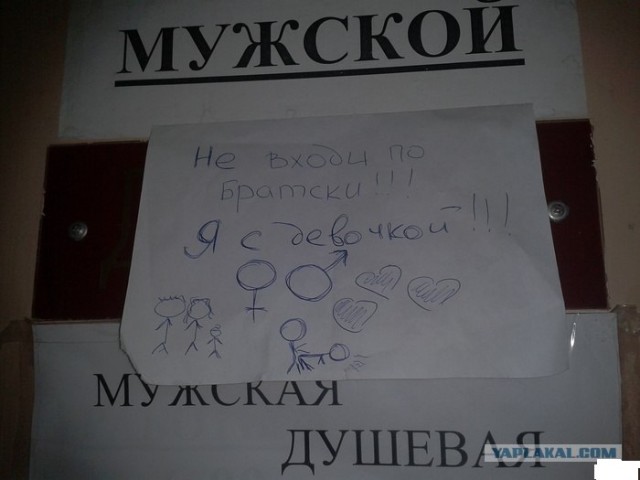 МУЖСКОЙ
Не входи по
братски!!!
Я с девочкой!!!
МУЖСКАЯ
ДУШЕВАЯ
YAPLAKAL.COM